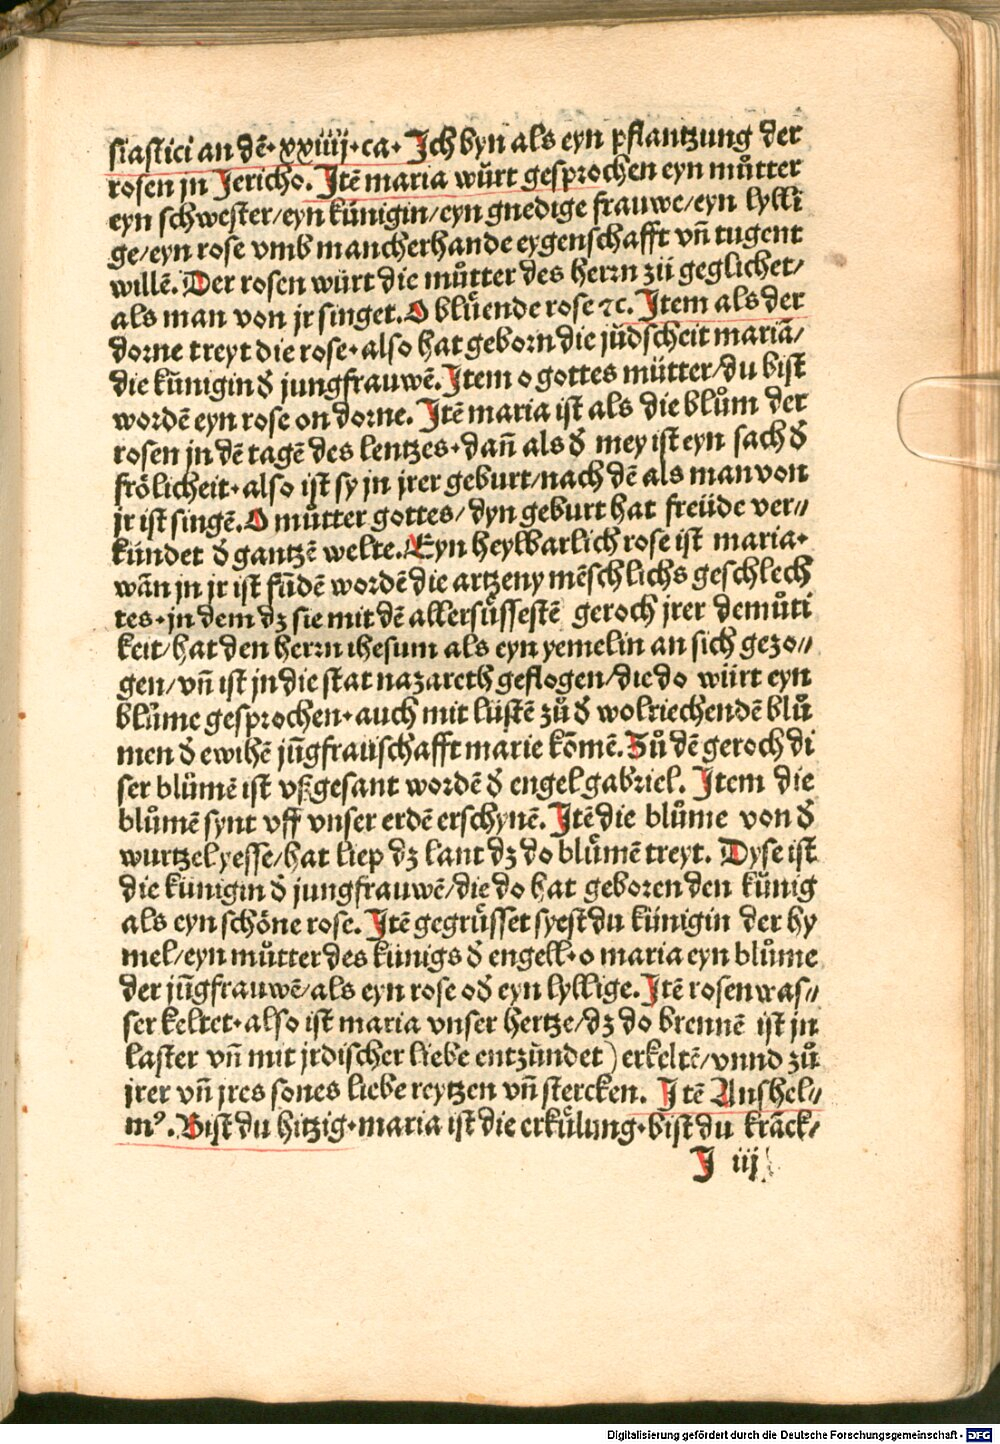 siastici an dē·xxiiij·ca· Ich byn als eyn pflantzung der
rosen jn Jericho. Itē maria würt gesprochen eyn můtter
eyn schwester/eyn künigin/eyn gnedige frauwe/eyn lylli
ge/eyn rose vmb mancherhande eygenschafft vñ tugent
willē. Der rosen würt die můtter des herrn zů geglichet/
als man von jr singet. O blůende rose ⁊c. Item als der
dorne treyt die rose·also hat geborn die jüdscheit mariā/
die künigin d̄ jungfrauwē. Item o gottes můtter/du bist
wordē eyn rose on dorne. Itē maria ist als die blům der
rosen jn dē tagē des lentzes·dañ als d̄ mey ist eyn sach d̄
frölicheit·also ist sy jn jrer geburt/nach dē als man von
jr ist singē. O můtter gottes/dyn geburt hat freüde ver//
kündet d̄ gantzē welte. Eyn heylbarlich rose ist maria·
wān jn jr ist fūdē wordē die artzeny mēschlichs geschlech
tes·jn dem dz sie mit dē allersüssestē geroch jrer demůti
keit/hat den herrn ihesum als eyn yemelin an sich gezo//
gen/vñ ist jn die stat nazareth geflogen/die do würt eyn
blůme gesprochen·auch mit lüstē zů d̄ wolriechendē blů
men d̄ ewihē jūgfrauschafft marie kōmē. Zů dē geroch di
ser blůmē ist vßgesant wordē d̄ engel gabriel. Item die
blůmē synt vff vnser erdē erschynē. Itē die blůme von d̄
wurtzel yesse/hat liep dz lant dz do blůmē treyt. Dyse ist
die künigin d̄ jungfrauwē/die do hat geboren den künig
als eyn schöne rose. Itē gegrüsset syest du künigin der hy
mel/eyn můtter des künigs d̄ engell·o maria eyn blůme
der jūgfrauwē/als eyn rose od̄ eyn lyllige. Itē rosenwas//
ser keltet·also ist maria vnser hertze/dz do brennē ist jn
laster vñ mit jrdischer liebe entzündet) erkeltē/vnnd zů
jrer vñ jres sones liebe reytzen vñ stercken. Itē Anshel//
mꝰ. Bist du hitzig·maria ist die erkůlung·bist du krāck/
J iij
Digitalisierung gefördert durch die Deutsche Forschungsgemeinschaft - DFG